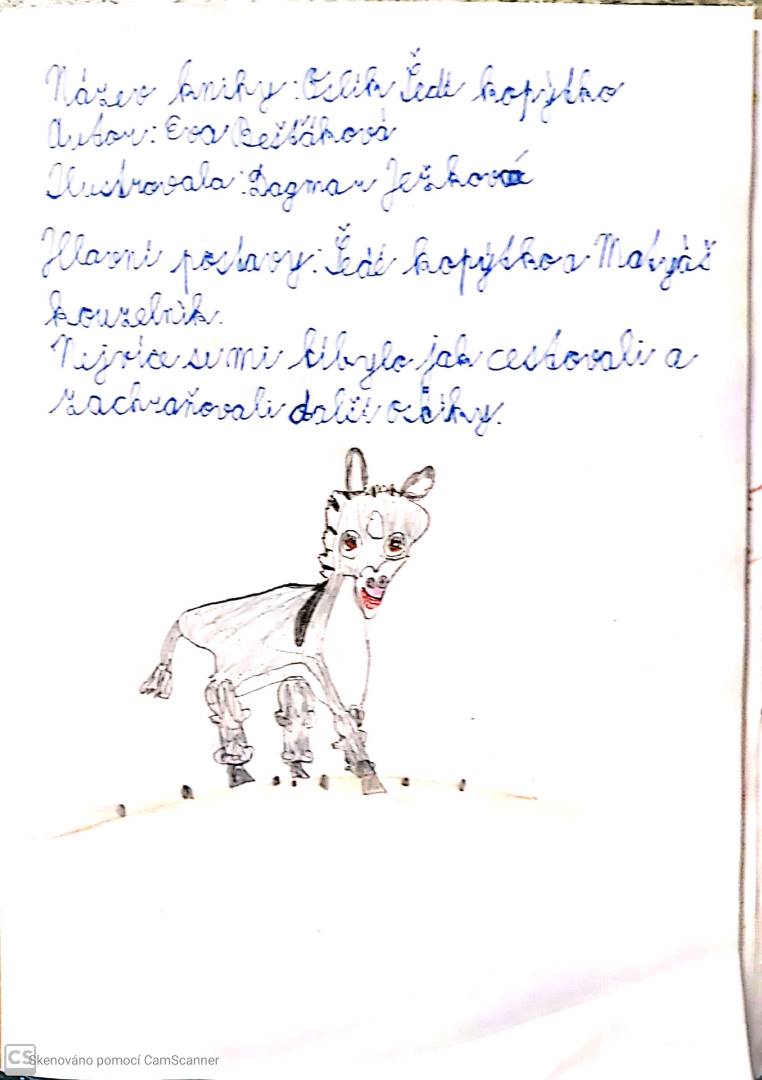 Název knihy: Oslík Šedé kopýtko
Autor: Eva Bešťáková
Ilustrovala: Dagmar Ježková
Hlavní postavy: Šedé kopýtko a Matyáš
kouzelník.
Nejvíce se mi líbylo jak cestovali a
zachraňovali další oslíky.
CS Skenováno pomocí CamScanner